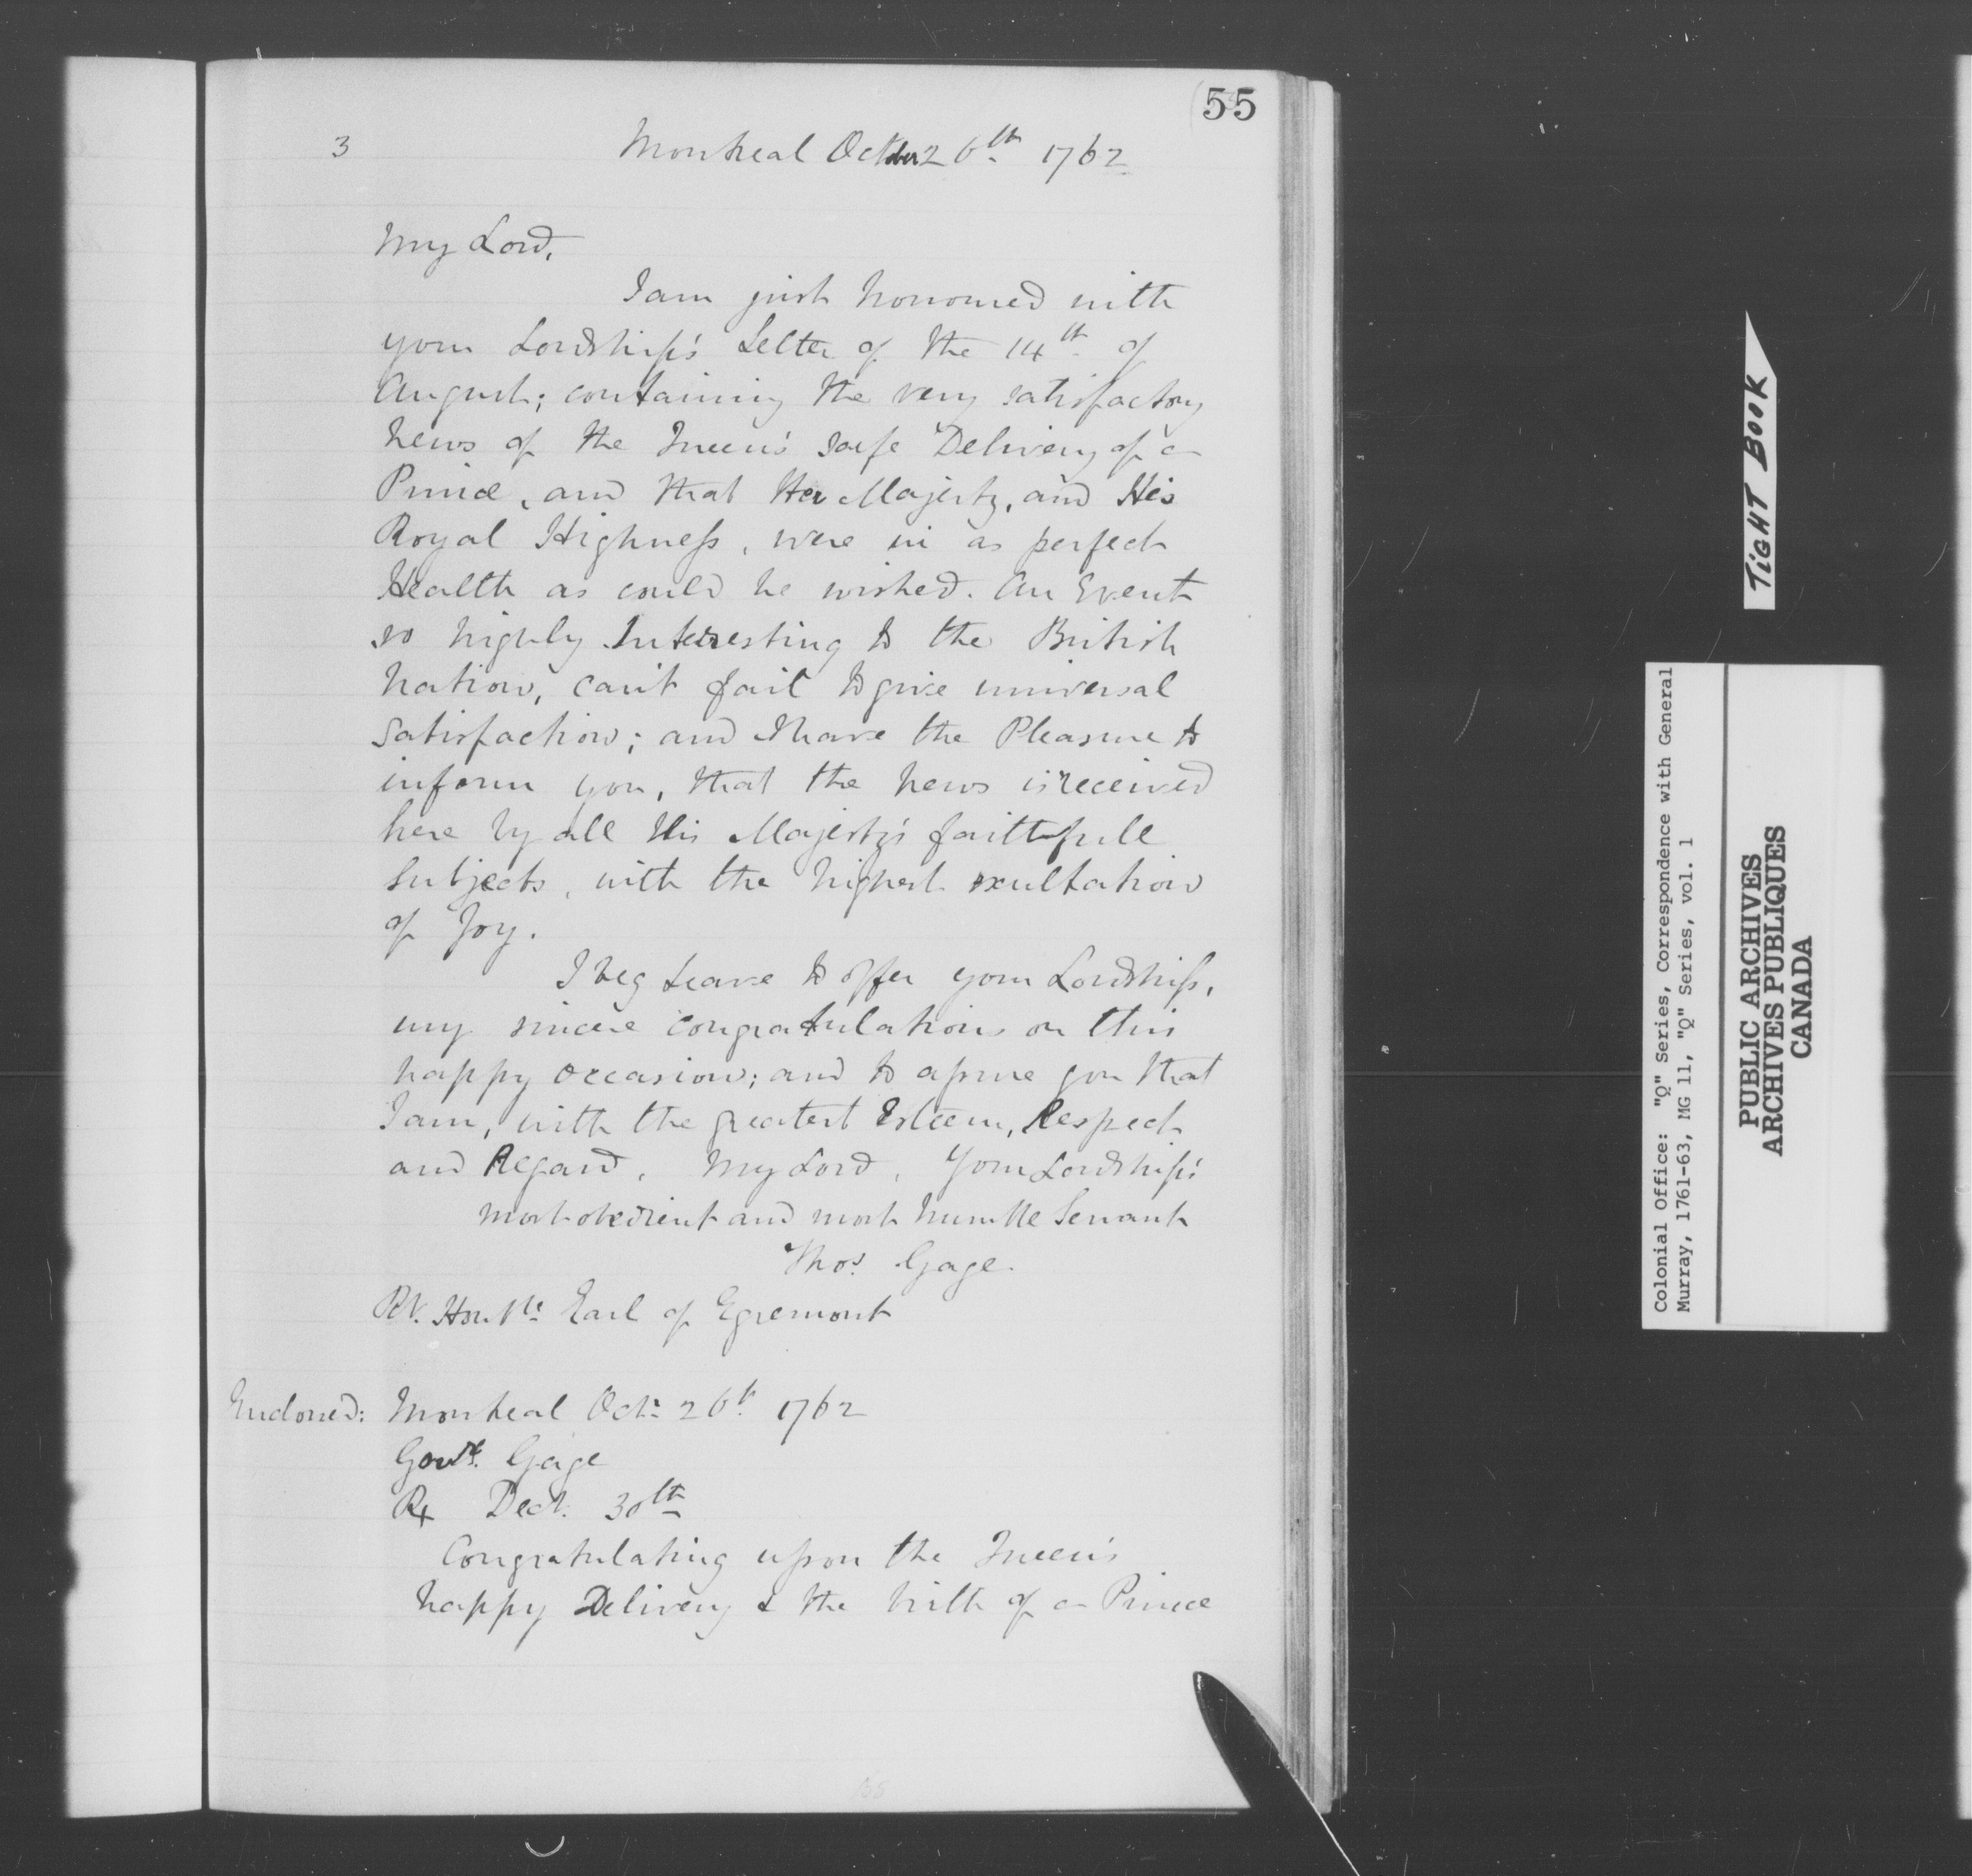 55
3
Montreal October 26th 1762
My Lord,
I am just honoured with
your Lordship's Letter of the 14th of
August; containing the very satisfactory
News of the Queen's safe Delivery of a
Prince, and that Her Majesty, and His
Royal Highness, were in as perfect
Health as could be wished. An Event
so highly Interesting to the British
Nation, can't fail to give universal
satisfaction; and I have the Pleasure to
inform you, that the News is received
here by all His Majesty's faithfull
Subjects, with the highest exultation
of Joy.
I beg Leave to offer your Lordship,
my sincere congratulations on this
happy occasion; and to assure you that
I am, with the greatest Esteem, Respect
and Regard, My Lord, Your Lordship's
most obedient and most humble Servant
Thos. Gage.
Rt. Honble. Earl of Egremont
Endorsed: Montreal Octr. 26th. 1762
Govr. Gage
Rx Decr. 30th
Congratulating upon the Queen's
happy Delivery & the birth of a Prince
TIGHT BOOK
Colonial Office: "Q" Series, Correspondence with General
Murray, 1761-63, MG 11, "Q" Series, vol. 1
PUBLIC ARCHIVES
ARCHIVES PUBLIQUES
CANADA